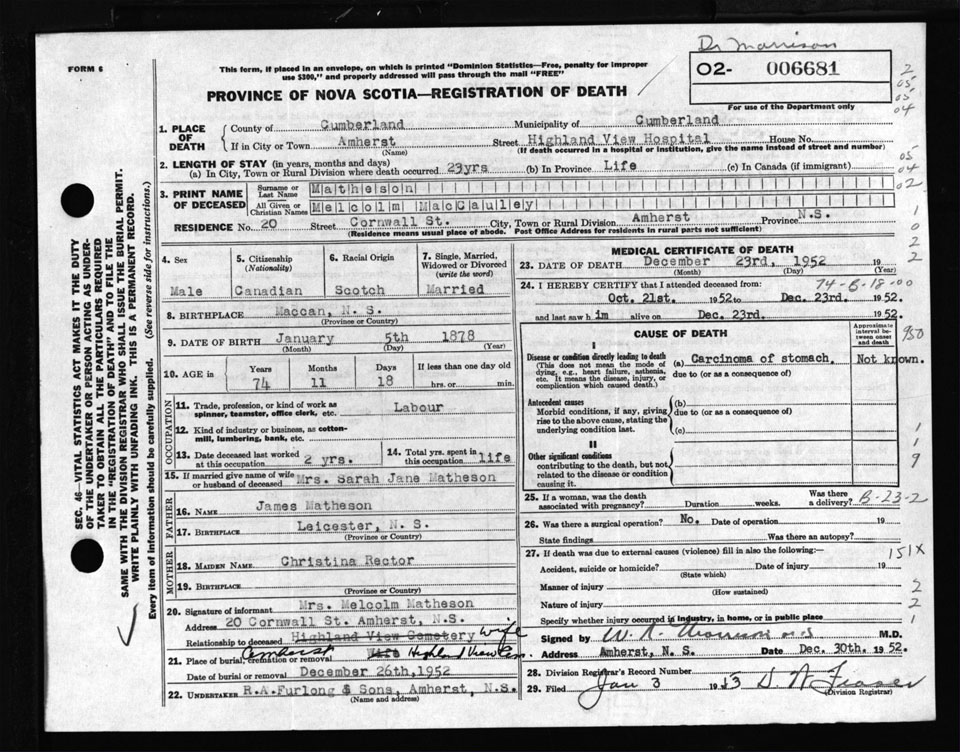 Dr Morrison
FORM 6
This form, if placed in an envelope, on which is printed "Dominion Statistics—Free, penalty for improper
use $300," and properly addressed will pass through the mail "FREE"
02- 006681
For use of the Department only
PROVINCE OF NOVA SCOTIA—REGISTRATION OF DEATH
2
05
05
04
05
04
02
1
0
2
2
SEC. 46—VITAL STATISTICS ACT MAKES IT THE DUTY
OF THE UNDERTAKER OR PERSON ACTING AS UNDER-
TAKER TO OBTAIN ALL THE PARTICULARS REQUIRED
IN THE "REGISTRATION OF DEATH" AND TO FILE THE
SAME WITH THE DIVISION REGISTRAR WHO SHALL ISSUE THE BURIAL PERMIT.
WRITE PLAINLY WITH UNFADING INK. THIS IS A PERMANENT RECORD.
Every item of information should be carefully supplied. (See reverse side for instructions.)
1. PLACE OF DEATH
County of Cumberland Municipality of Cumberland
If in City or Town Amherst Street Highland View Hospital House No.
(Name) (If death occurred in a hospital or institution, give the name instead of street and number)
2. LENGTH OF STAY (in years, months and days)
(a) In City, Town or Rural Division where death occurred 23yrs (b) In Province Life (c) In Canada (if immigrant)
3. PRINT NAME OF DECEASED
Surname or Last Name Matheson
All Given or Christian Names Melcolm MacCauley
RESIDENCE No. 20 Street Cornwall St. City, Town or Rural Division Amherst Province N.S.
(Residence means usual place of abode. Post Office Address for residents in rural parts not sufficient)
4. Sex
Male
5. Citizenship
(Nationality)
Canadian
6. Racial Origin
Scotch
7. Single, Married,
Widowed or Divorced
(write the word)
Married
8. BIRTHPLACE Maccan, N. S.
(Province or Country)
9. DATE OF BIRTH January 5th 1878
(Month) (Day) (Year)
10. AGE in
Years Months Days If less than one day old
74 11 18 hrs. or min.
OCCUPATION
11. Trade, profession, or kind of work as
spinner, teamster, office clerk, etc. Labour
12. Kind of industry or business, as cotton-
mill, lumbering, bank, etc.
13. Date deceased last worked
at this occupation 2 yrs.
14. Total yrs. spent in
this occupation life
15. If married give name of wife
or husband of deceased Mrs. Sarah Jane Matheson
FATHER
16. NAME James Matheson
17. BIRTHPLACE Leicester, N. S.
(Province or Country)
MOTHER
18. MAIDEN NAME Christina Rector
19. BIRTHPLACE
(Province or Country)
20. Signature of informant Mrs. Melcolm Matheson
Address 20 Cornwall St. Amherst, N.S.
Relationship to deceased Highland View Cemetery Wife
21. Place of burial, cremation or removal Amherst Wife Highland View Cem.
Date of burial or removal December 26th, 1952
22. UNDERTAKER R.A.Furlong & Sons, Amherst, N.S.
(Name and address)
MEDICAL CERTIFICATE OF DEATH
23. DATE OF DEATH December 23rd, 1952 19
(Month) (Day) (Year)
74-
24. I HEREBY CERTIFY that I attended deceased from:
Oct. 21st. 1952 to Dec. 23rd. 1952.
and last saw him alive on Dec. 23rd. 1952.
CAUSE OF DEATH
Approximate
interval be-
tween onset
and death
I
Disease or condition directly leading to death
(This does not mean the mode of
dying, e.g., heart failure, asthenia,
etc. It means the disease, injury, or
complication which caused death.)
(a) Carcinoma of stomach. Not known.
due to (or as a consequence of)
Antecedent causes
Morbid conditions, if any, giving
rise to the above cause, stating the
underlying condition last.
(b)
due to (or as a consequence of)
(c)
II
Other significant conditions
contributing to the death, but not
related to the disease or condition
causing it.
1
1
9
25. If a woman, was the death
associated with pregnancy? Duration weeks. Was there
a delivery? B-23-2
26. Was there a surgical operation? No. Date of operation 19
State findings Was there an autopsy?
27. If death was due to external causes (violence) fill in also the following:
151X
Accident, suicide or homicide? Date of injury 19
(State which)
Manner of injury 2
(How sustained)
Nature of injury 2
Specify whether injury occurred in industry, in home, or in public place 1
Signed by M.D.
Address Amherst, N. S. Date Dec. 30th. 1952.
28. Division Registrar's Record Number
29. Filed Jan 3 1953 D. W Fraser
(Division Registrar)